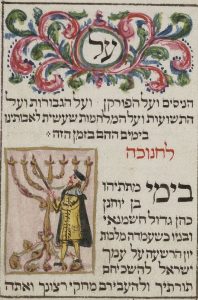 על
הניסים ועל הפורקן ועל הגבורות ועל
התשועות ועל המלחמות שעשית לאבותינו
בימים ההם בזמן הזה:
לחנוכה
בימי מתתיהו
בן יוחנן
כהן גדול חשמנאי
ובניו כשעמדה מלכות
יון הרשעה על עמך
ישראל להשכיחם
תורתיך ולהעבירם מחקי רצונך ואתה